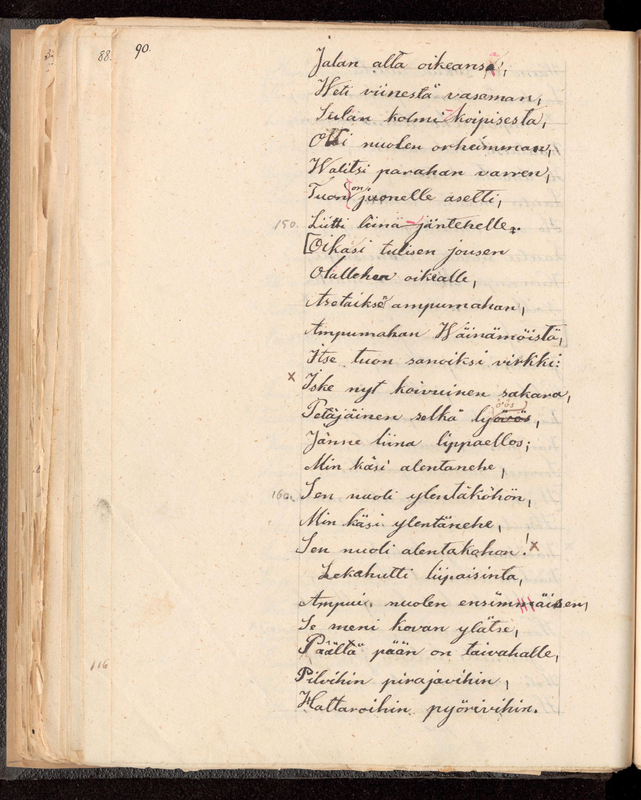 88.
90.
Jalan alta oikeansa,
Weti viinestä vasaman,
Sulan kolmi-koipisesta,
Otti nuolen orheimman,
Walitsi parahan varren,
Tuon on juonelle asetti,
150. Liitti liina-jäntehelle.
[Oikasi tulisen jousen
Olallehen oikealle,
Asetaikse ampumahan,
Ampumahan Wäinämöistä,]
Itse tuon sanoiksi virkki:
x Iske nyt koivuinen sakara,
Petäjäinen selkä lyöös,
Jänne liina lippaellos;
Min käsi alentanehe,
160. Sen nuoli ylentäköhön,
Min käsi ylentänehe,
Sen nuoli alentakohon! x
Lekahutti liipaisinta,
Ampui nuolen ensimmäisen,
Se meni kovan ylätse,
Päältä pään on taivahalle,
116
Pilvihin pirajavihin,
Hattaroihin pyörivihin.